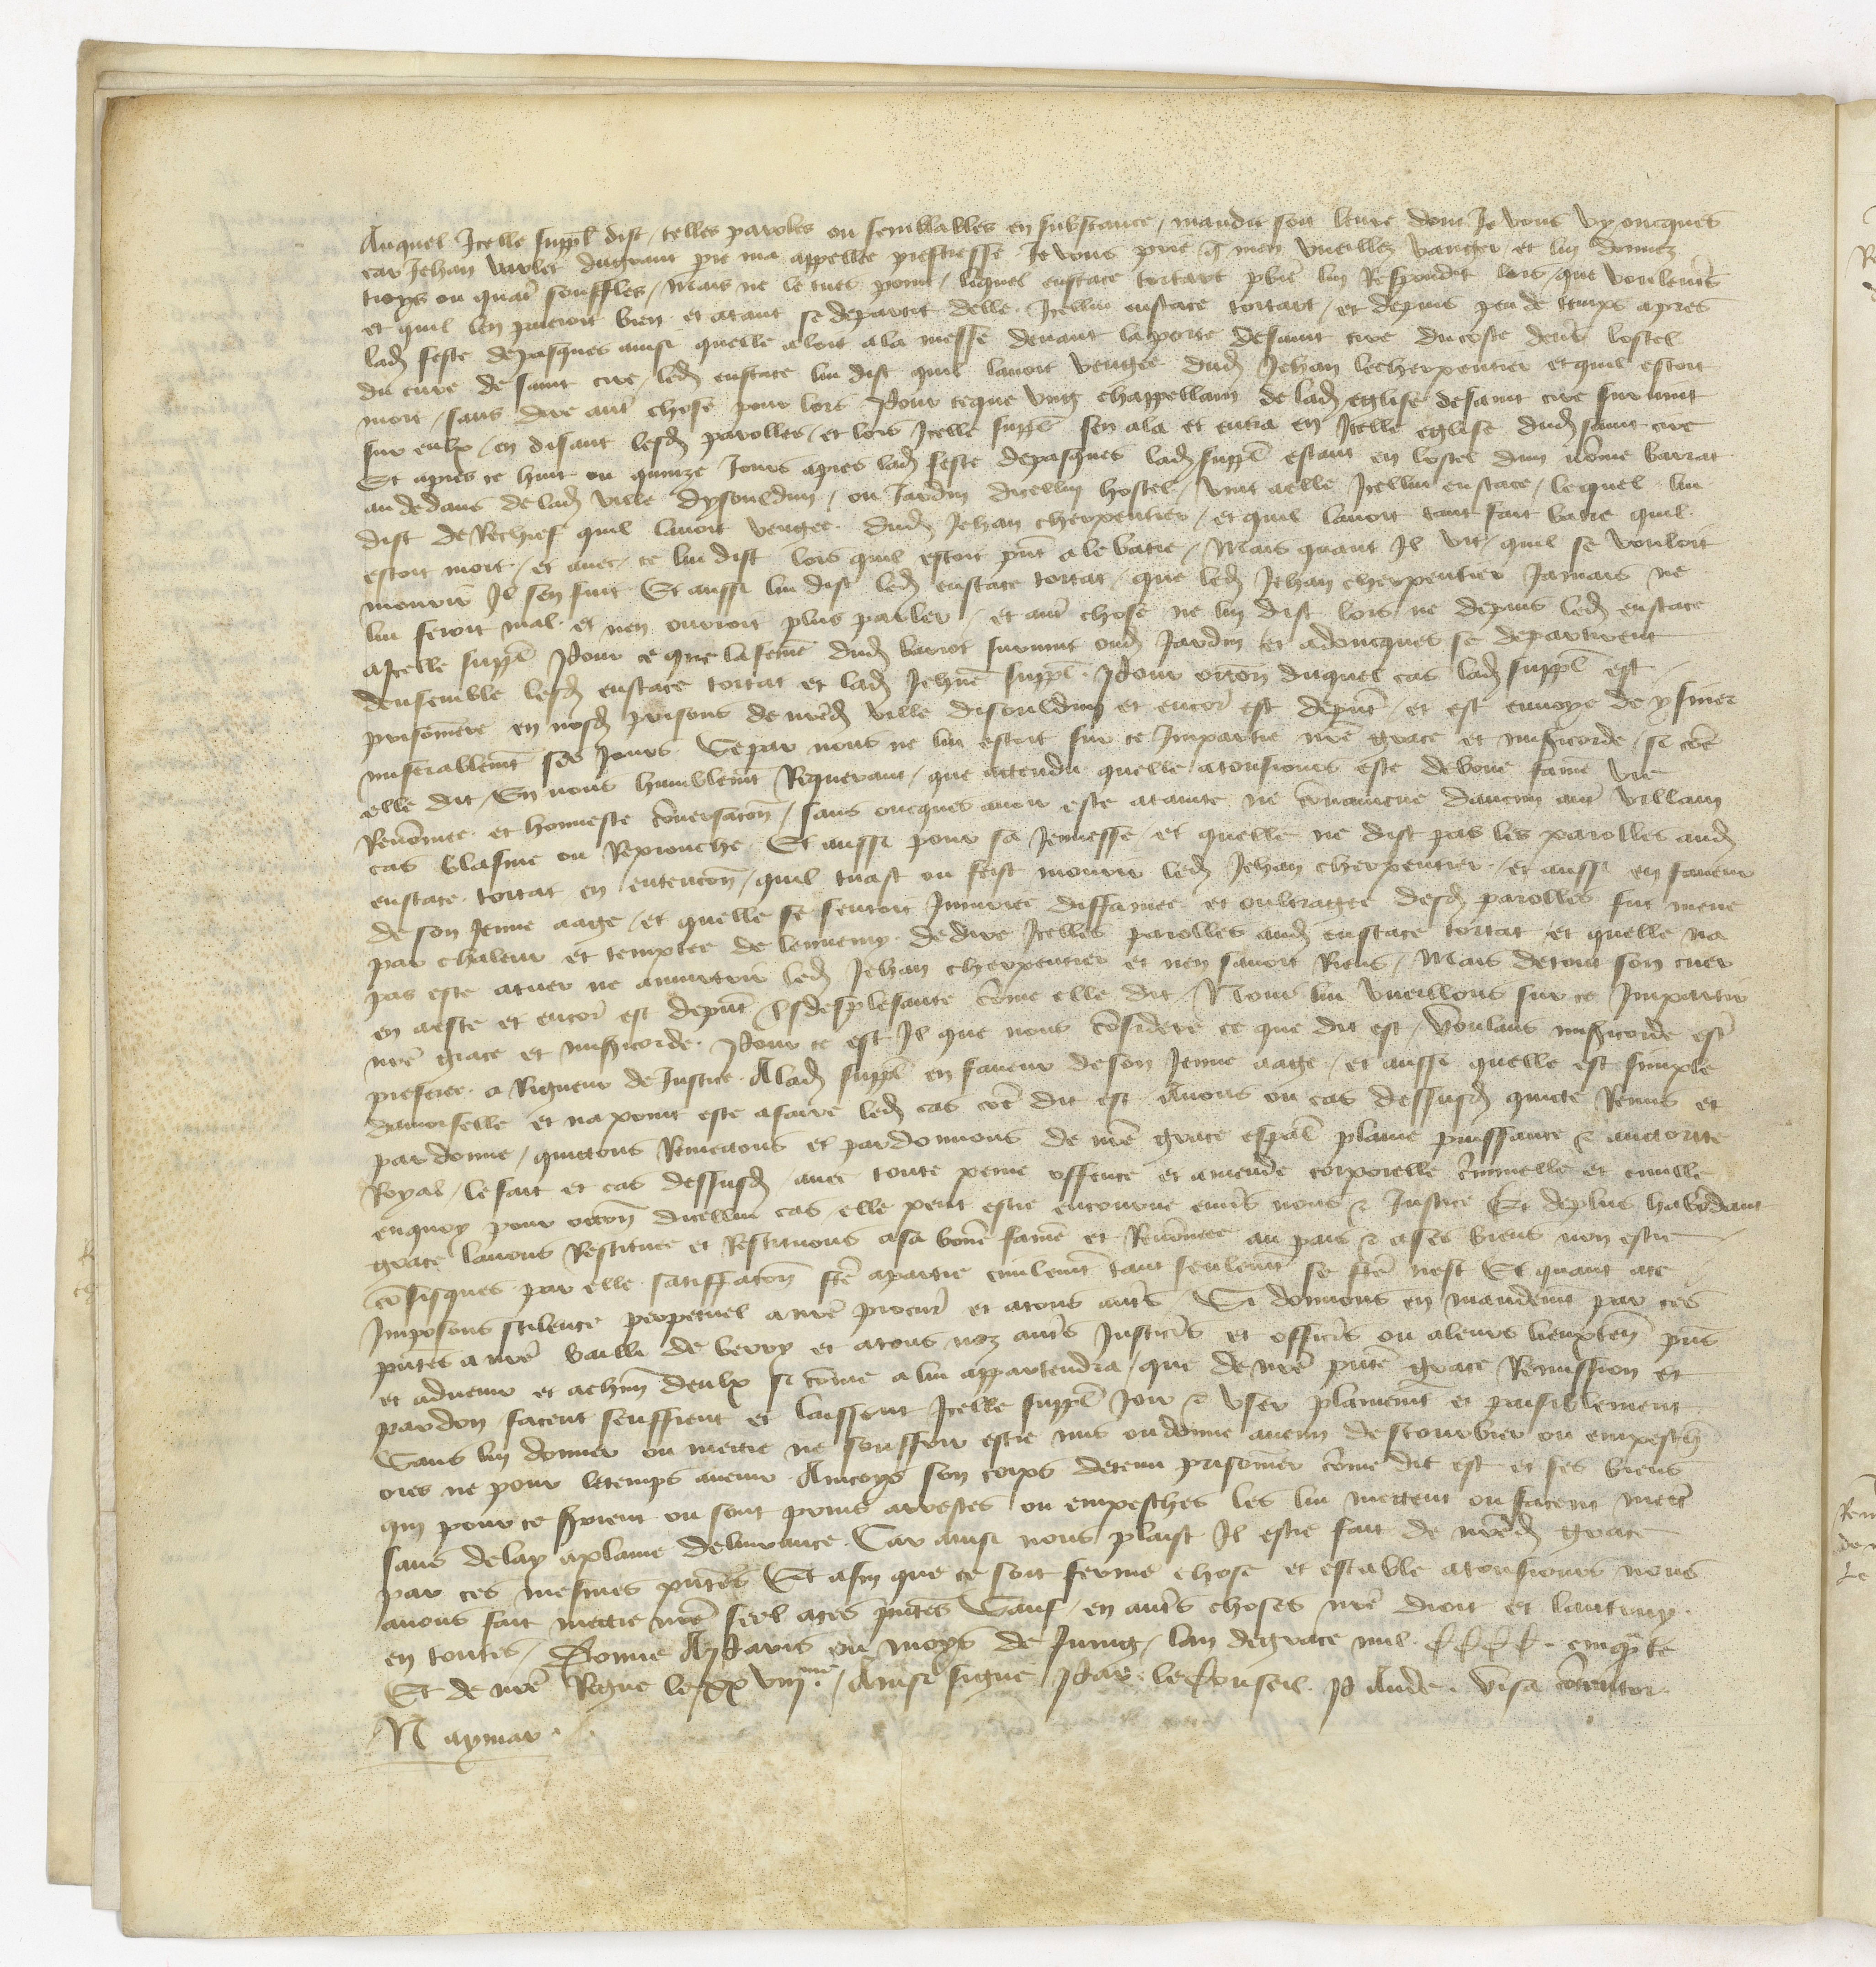 Auquel Icelle suppl dist telles paroles ou semblables en substance maudit soit leure dont Je vous vy oncques
car Jehan varlet dugrant pre ma appellee prestresse Je vous prie q men vueillez vanger et luy donnez
troys ou quatr souffles Mais ne le tues point lequel eustace tortart luy Respondit lors que voulentrs
et quil len paieroit bien et atant se departit delle Icellui eustace tortart et depuis peu de temps apres
lad feste depasques ainsi quelle aloit ala messe devant laporte desaint cire ducoste devers lostel
du cure de saint cire led eustace lui dist quil lavoit vengee dud Jehan lecherpentier et quil estoit
mort sans dire autr chose pour lors Pour ceque ung chappellain de lad eglise desaint cire survint
sur eulx en disant lesd parolles et lors Icelle suppl sen ala et entra en Icelle eglise dud saint cire
Et apres ce huit ou quinze Jours apres lad feste depasques lad suppl estant en lostel dun nome barrat
audedans delad ville dyssouldun ou Jardin dicelluy hostel vint aelle Icellui eustace lequel lui
dist deRechief quil lavoit vengee dud Jehan cherpentier et quil lavoit tant fait batre quil
estoit mort et avec ce lui dist lors quil estoit pnt ale batre Mais quant Il vit quil se vouloit
mourir Il sen fuit Et aussi lui dist led eustace tortat que led Jehan cherpentier Jamais ne
lui feroit mal et nen ourroit plus parler et autr chose ne luy dist lors ne depuis led eustace
aIcelle suppl Pour ce que lafeme dud barrot survint oud Jardin et adoncques se departirent
densemble lesd eustace tortat et lad Jehne suppl Pour occon duquel cas lad suppl est
prisonniere en nosd prisons de nred ville disouldun et encor est depnt et est envoye de y finer
miserablemt ses Jours Separ nous ne lui estoit sur ce Impartie nre grace et misicorde si coe
elle dit En nous humblemt Requerant que attendu quelle atousiours este debone fame vie
Renomee et honneste conversacon sans oncques avoir este atainte ne convaincue daucun autr villain
cas blasme ou Reprouche Et aussi pour sa Jeunesse et quelle ne dist pas les parolles aud
eustace tortat en entencon quil tuast ou feist mourir led Jehan cherpentier et aussi en faveur
de son Jeune aage et quelle se sentoit Iniuriee diffamee et oultragee desd parolles fut meue
par chaleur et temptee de lennemy dedire Icelles parolles aud eustace tortat et quelle na
pas este atuer ne amurtrir led Jehan cherpentier et nen savoit Riens Mais detout son cuer
en aeste et encor est depnt desplesante come elle dit Nous lui vueillons sur ce Impartir
nre grace et misicorde Pour ce est Il que nous considere ce que dit est voulans misicorde estr
preferee a Rigueur de Justice Alad suppl en faveur deson Jeune aage et aussi quelle est simple
damoiselle et na point este afaire led cas coe dit est Avons ou cas dessusd quicte Remis et
pardonne quictons Remectons et pardonnons de nre grace espal plaine puissance & auctorite
Royal le fait et cas dessusd avec toute peine offence et amende corporelle criminelle et civille
enquoy pour occon dicellui cas elle peut estre encourue envrs nous & Justice Et deplus habondant
grace lavons Restituee et Restituons asa bone fame et Renomee au pais & ases biens non estre
confisques par elle satisfacon fte apartie civilemt tant seulemt se fte nest Et quant ace
Imposons scilence perpetuel anre procur et atous autrs Si donnons en mandemt par ces
pntes anre bailli de berry et atous noz autrs Justicrs et officrs ou aleurs lieuxten pns
et advenir et achun deulx si come alui appartendra que de nre pnte grace Remission et
pardon facent seuffrent et laissent Icelle suppl Joir & user plainemt et paisiblement
Sans luy donner ou mettre ne souffrir estre mis oudonne aucun destourbier ou empesch
ores ne pour letemps avenir Aincoys son corps detenu prisonner come dit est et ses biens
qui pour ce seroient ou sont prins arrestes ou empesches les lui mettent ou facent mettr
sans delay aplaine delivrance Car ainsi nous plaist Il estre fait de nred grace
par ces mesmes pntes Et afin que ce soit ferme chose et estable atousiours nous
avons fait mettre nre seel aces pntes Sauf en autrs choses nre droit et lautruy
en toutes Donne AParis ou moys de Juing lan degrace mil CCCC cinqte
Et de nre Regne le xxviiime Ainsi signe Par le Conseil P Aude visa contentor
N aymar